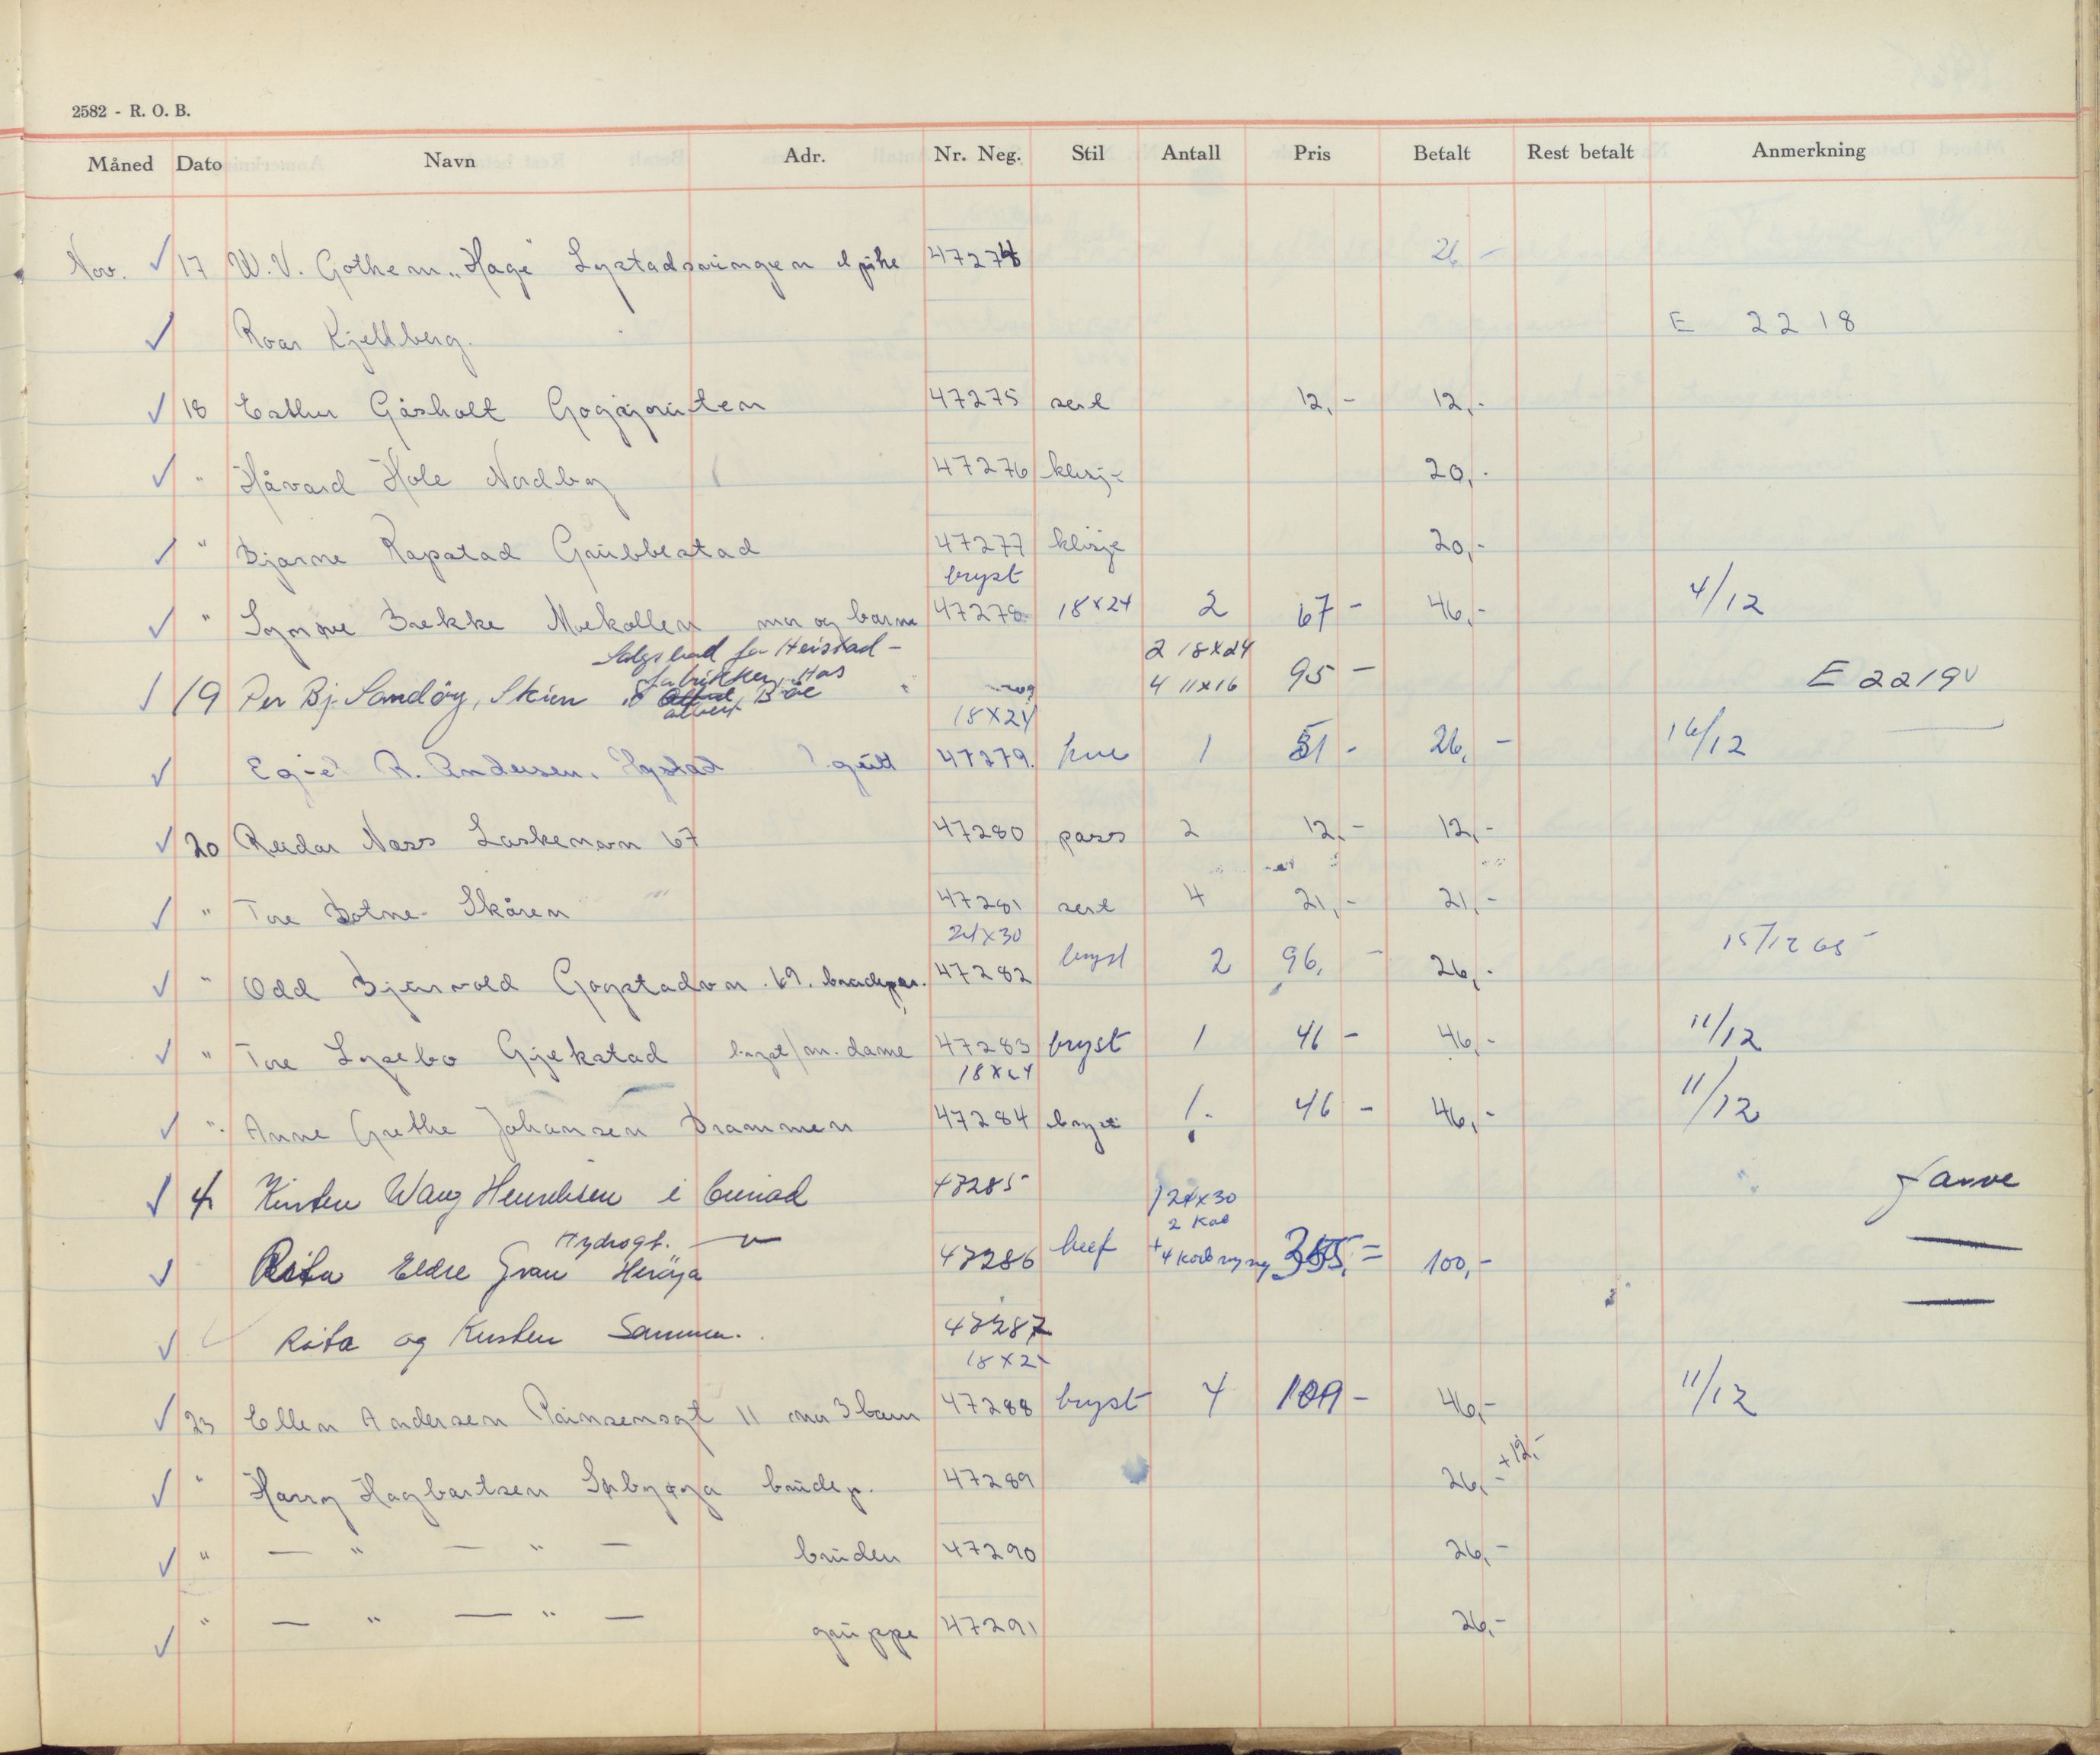 2582 - R. O. B.
Måned Dato Navn Adr. Nr. Neg. Stil Antall Pris Betalt Rest betalt Anmerkning
Nov. ✓ 17 W. V. Gothem „Hage" 47274 26,-
✓ Roar Kjellberg. E 2218
✓ 18 Esther Gåsholt 47275 sert 12,- 12,-
✓ " Håvard Hole Nordby 47276 klisje 20,-
✓ " Bjarne Rapstad Grubbestad 47277 klisje 20,-
bryst
✓ " Synnøve Brekke Moekollen mor og barn 47278 18x24 2 67- 46,- 4/12
Salgsbod for Heistad-
fabrikker, Hos
✓ 19 Per Bj. Sandöy, Skien 2 18x24 4 11x16 95- E 2219
albert Böe
18x24
✓ R. Andersen. gutt 47279. 1 51- 26,- 16/12
✓ 20 Reidar Næss Laskenvn 67 47280 pass 2 12,- 12,-
✓ " Tore Botne Skåren 47281 sert 4 21,- 21,-
24x30
✓ " Odd Bjærvold Gogstadvn. 69. brudepar. 47282 bryst 2 96,- 26,- 15/12 65
✓ " Tore Lysebo Gjekstad bryst/m. dame 47283 bryst 1 46- 46,- 11/12
18x24
✓ " Anne Grethe Johansen Drammen 47284 bryst 1. 46- 46,- 11/12
✓ Kirsten Wang Henriksen i bunad 47285 Janve
1 24x30
2 Kab
Hydrogt.
✓ Rita Eldre Gran Heröya 47286 +4 100,-
✓ Rita og Kirsten Sammen. 47287
18x24
✓ 23 Ellen Andersen Prinsensgt 11 mor 3 barn 47288 bryst 4 109- 46,- 11/12
✓ " Harry Hagbartsen Sørbyøya brudep. 47289 26,- +12,-
✓ " — " — " — bruden 47290 26,-
✓ " — " — " — gruppe 47291 26,-